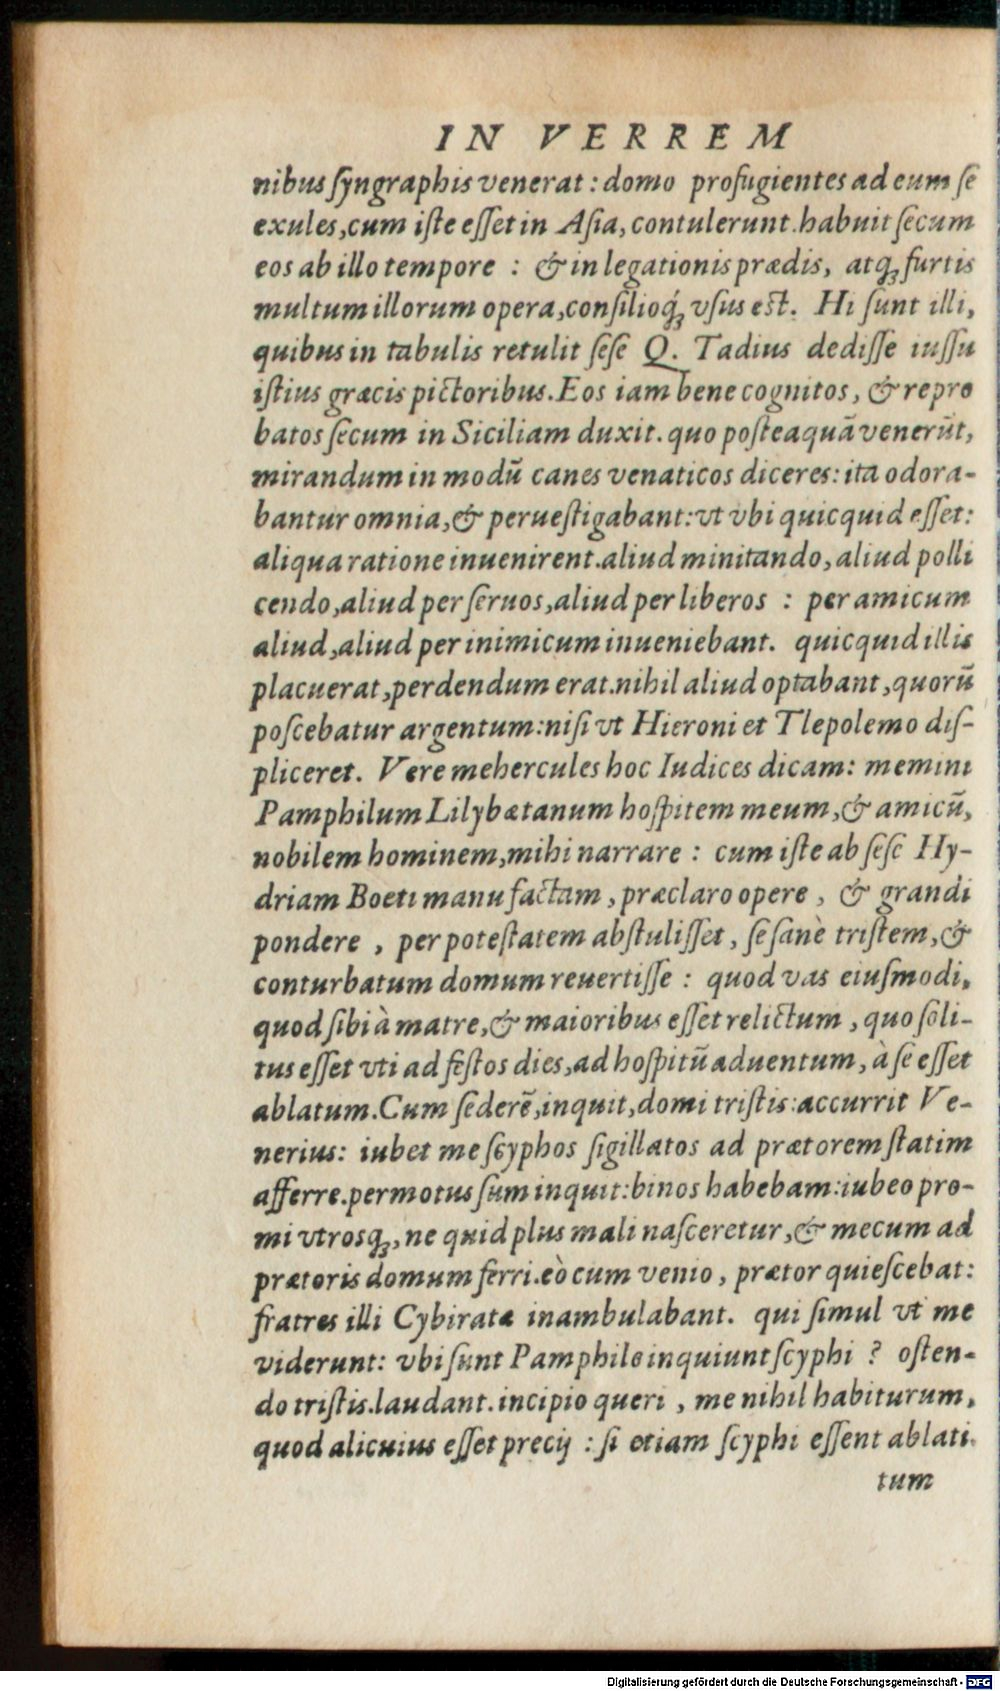 IN VERREM
nibus ſyngraphis venerat : domo profugientes ad eum ſe
exules,cum iſte eſſet in Aſia, contulerunt.habuit ſecum
eos ab illo tempore : & in legationis prædis, atqꝫ furtis
multum illorum opera,conſilioqꝫ́ vſus est. Hi ſunt illi,
quibus in tabulis retulit ſeſe Q. Tadius dediſſe iuſſu
iſtius græcis pictoribus.Eos iam bene cognitos, & repro
batos ſecum in Siciliam duxit. quo poſteaquã venerũt,
mirandum in modũ canes venaticos diceres: ita odora-
bantur omnia,& perueſtigabant:vt vbi quicquid eſſet:
aliqua ratione inuenirent.aliud minitando, aliud polli
cendo,aliud per ſeruos,aliud per liberos : per amicum
aliud,aliud per inimicum inueniebant. quicquid illis
placuerat,perdendum erat.nihil aliud optabant,quorũ
poſcebatur argentum:niſi vt Hieroni et Tlepolemo diſ-
pliceret. Vere mehercules hoc Iudices dicam: memini
Pamphilum Lilybætanum hoſpitem meum,& amicũ,
nobilem hominem,mihi narrare : cum iſte ab ſeſe Hy-
driam Boeti manu factam , præclaro opere , & grandi
pondere , per poteſtatem abſtuliſſet, ſe ſanè triſtem,&
conturbatum domum reuertiſſe : quod vas eiuſmodi,
quod ſibi à matre,& maioribus eſſet relictum , quo ſoli-
tus eſſet vti ad feſtos dies,ad hoſpitũ aduentum, à ſe eſſet
ablatum.Cum ſederẽ,inquit,domi triſtis:accurrit Ve-
nerius: iubet me ſcyphos ſigillatos ad prætorem ſtatim
afferre.permotus ſum inquit:binos habebam:iubeo pro-
mi vtrosqꝫ, ne quid plus mali naſceretur,& mecum ad
prætoris domum ferri.eò cum venio, prætor quieſcebat:
fratres illi Cybiratæ inambulabant. qui ſimul vt me
viderunt: vbi ſunt Pamphile inquiunt ſcyphi ? oſten-
do triſtis.laudant.incipio queri , me nihil habiturum,
quod alicuius eſſet precij : ſi etiam ſcyphi eſſent ablati.
tum
Digitalisierung gefördert durch die Deutsche Forschungsgemeinschaft - DFG